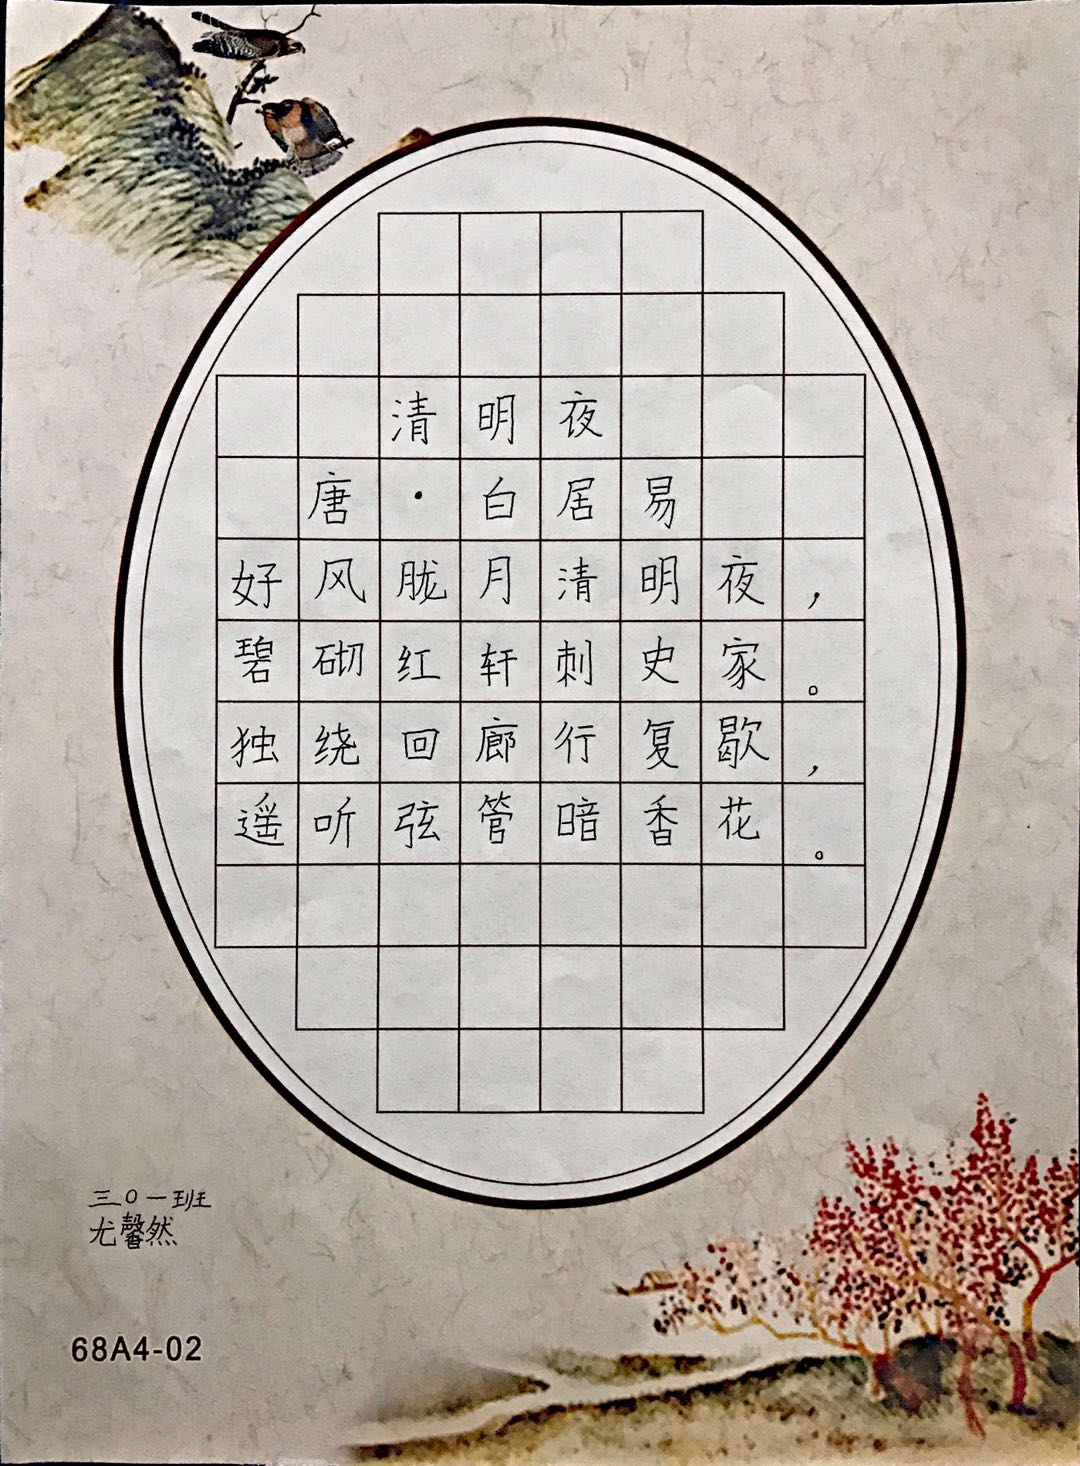 清明夜
唐·白居易
好风胧月清明夜，
碧砌红轩刺史家。
独绕回廊行复歇，
遥听弦管暗香花。
三〇一班
尤馨然
68A4-02